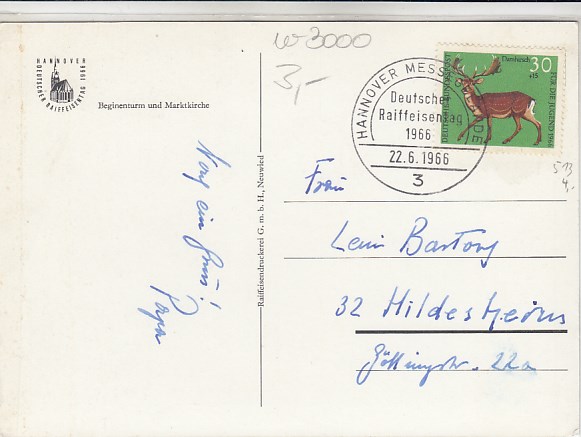 w-3000
3,-
HANNOVER
DEUTSCHER RAIFFEISENTAG 1966
Beginenturm und Marktkirche
Raiffeisendruckerei G. m. b. H., Neuwied
HANNOVER MESSEGELÄNDE
Deutscher
Raiffeisentag
1966
22.6.1966
3
Damhirsch
30
+15
DEUTSCHE BUNDESPOST
FÜR DIE JUGEND 1966
513
4,-
Noch ein Gruß!
Papa
Frau
Leni Bartony
32 Hildesheim
Göttingstr. 22a